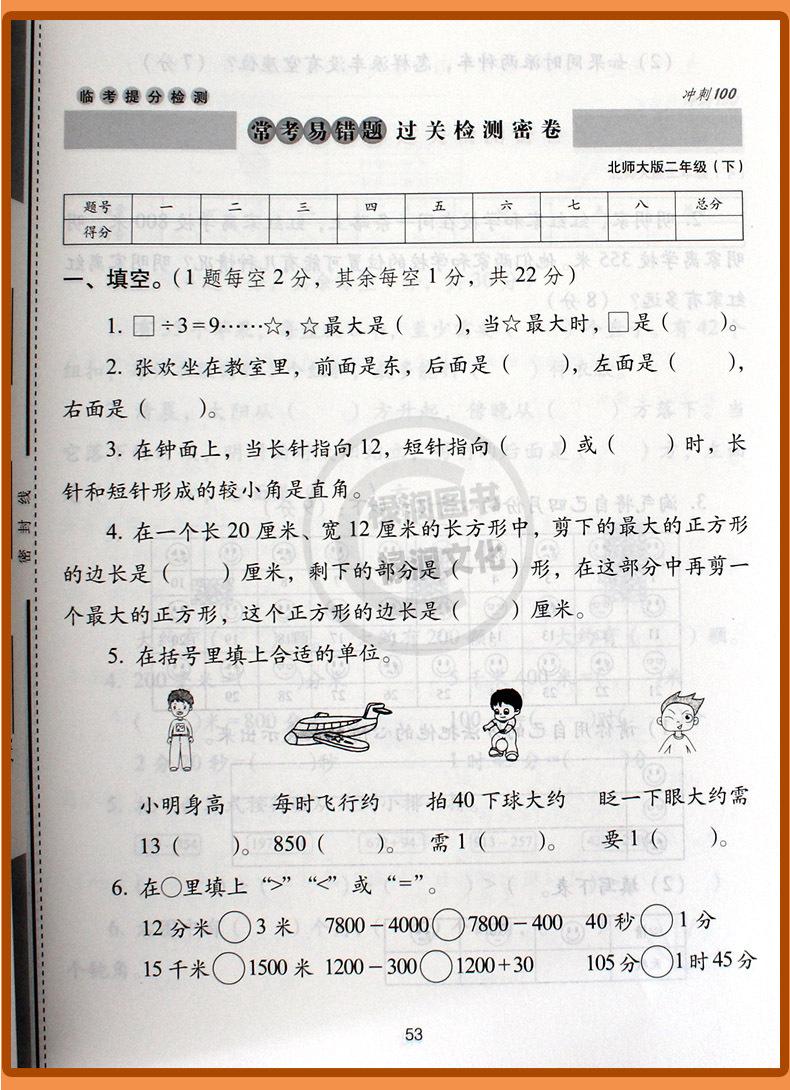 临考提分检测
冲刺100
常考易错题过关检测密卷
北师大版二年级（下）
题号 一 二 三 四 五 六 七 八 总分
得分
一、填空。（1题每空2分，其余每空1分，共22分）
1. □÷3=9……☆，☆最大是（ ），当☆最大时，□是（ ）。
2. 张欢坐在教室里，前面是东，后面是（ ），左面是（ ），
右面是（ ）。
3. 在钟面上，当长针指向12，短针指向（ ）或（ ）时，长
针和短针形成的较小角是直角。
4. 在一个长20厘米、宽12厘米的长方形中，剪下的最大的正方形
的边长是（ ）厘米，剩下的部分是（ ）形，在这部分中再剪一
个最大的正方形，这个正方形的边长是（ ）厘米。
5. 在括号里填上合适的单位。
小明身高 每时飞行约 拍40下球大约 眨一下眼大约需
13（ ）。 850（ ）。 需1（ ）。 要1（ ）。
6. 在○里填上“>”“<”或“=”。
12分米○3米 7800-4000○7800-400 40秒○1分
15千米○1500米 1200-300○1200+30 105分○1时45分
53
密封线
绿润图书
锦润文化